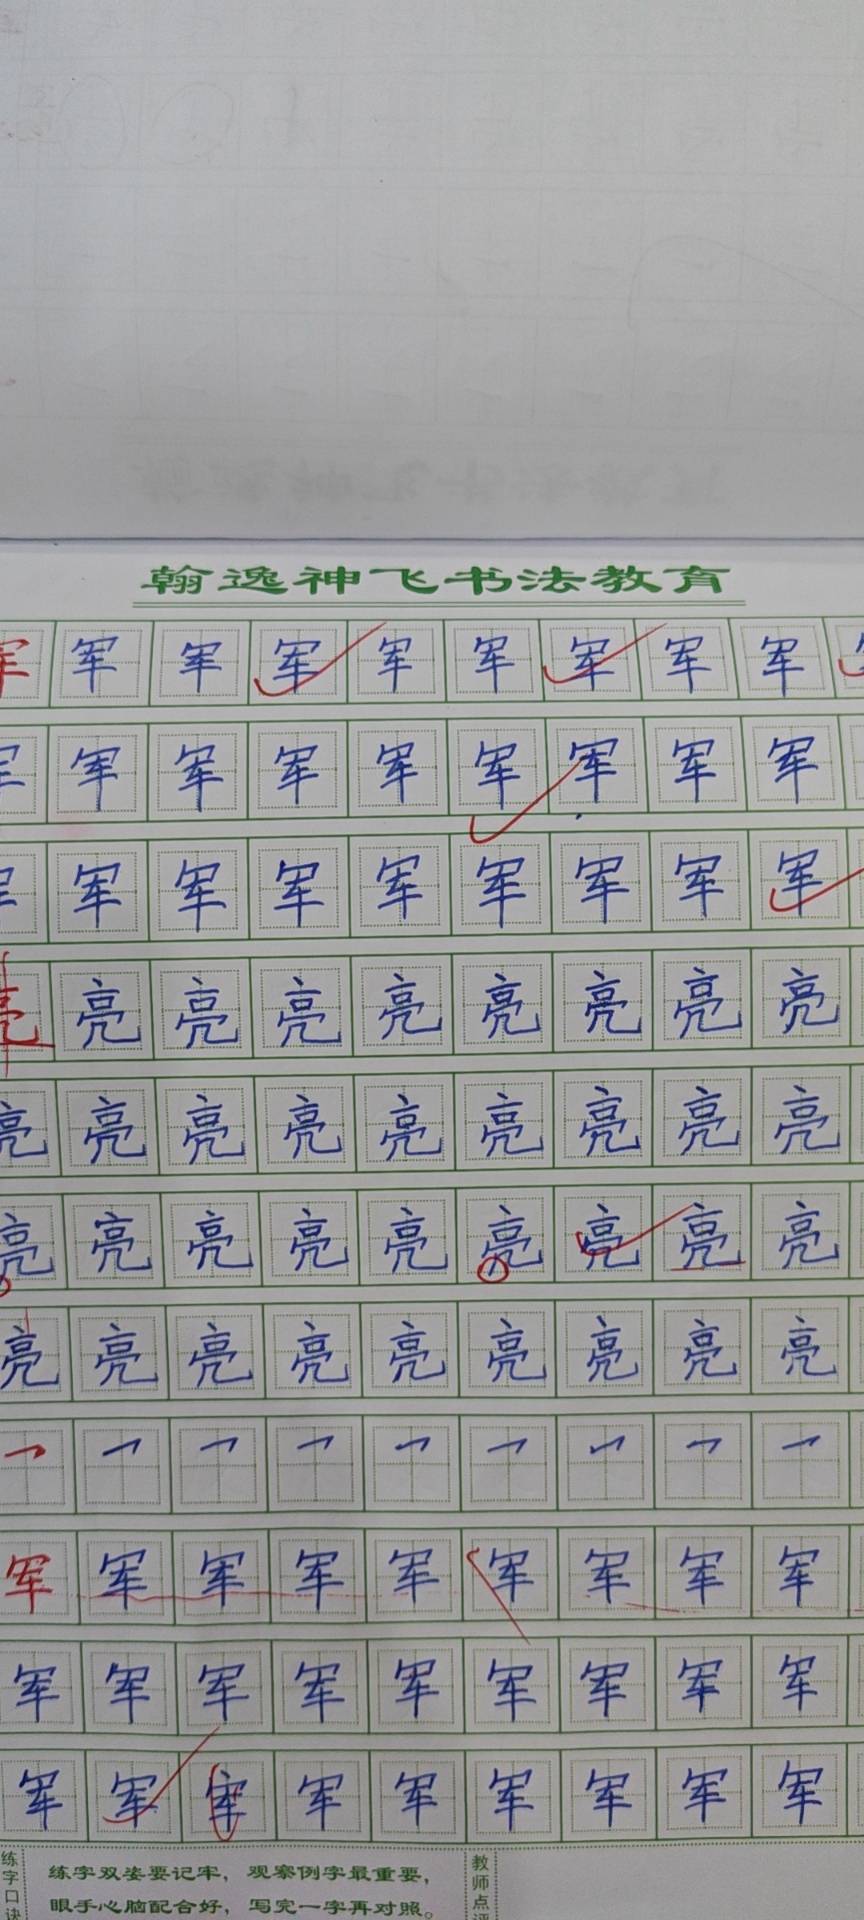 翰逸神飞书法教育
军军军军军军军军军
军军军军军军军军
军军军军军军军军
亮亮亮亮亮亮亮亮亮
亮亮亮亮亮亮亮亮亮
亮亮亮亮亮亮亮亮亮
亮亮亮亮亮亮亮亮亮
军军军军军军军军军
军军军军军军军军军
军军军军军军军军军
练字口诀
练字双姿要记牢，观察例字最重要，
眼手心脑配合好，写完一字再对照。
教师点评